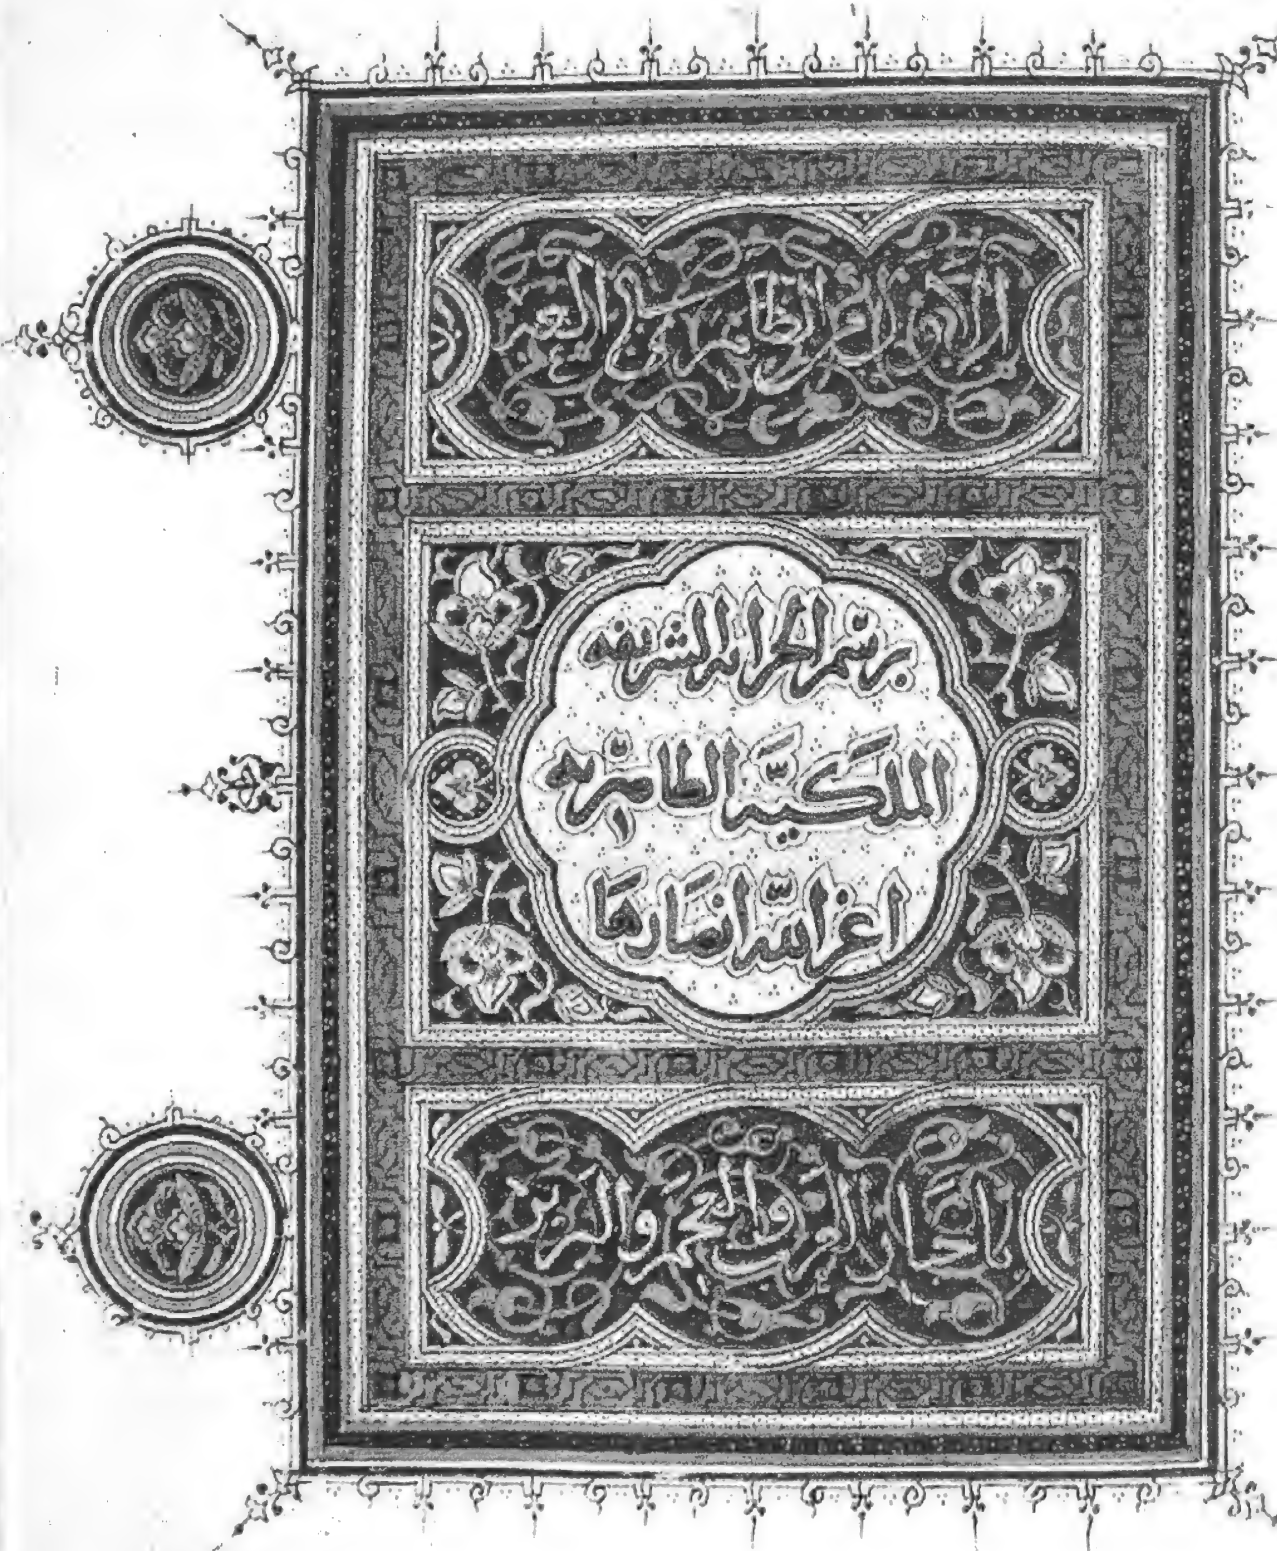 الكتاب الظاهري في العبر
برسم الخزانه الشريفه
الملكيه الظاهريه
اعز الله انصارها
باخبار العرب والعجم والبربر